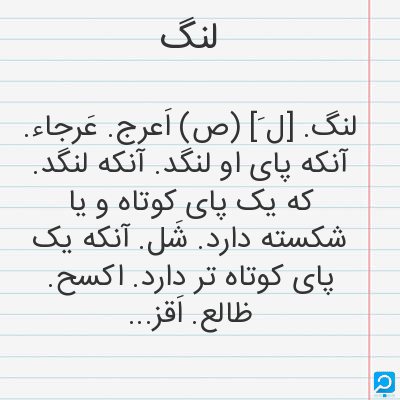 لنگ
لنگ. [ل َ] (ص) اَعرج. عَرجاء.
آنکه پای او لنگد. آنکه لنگد.
که یک پای کوتاه و یا
شکسته دارد. شَل. آنکه یک
پای کوتاه تر دارد. اکسح.
ظالع. اَقز...